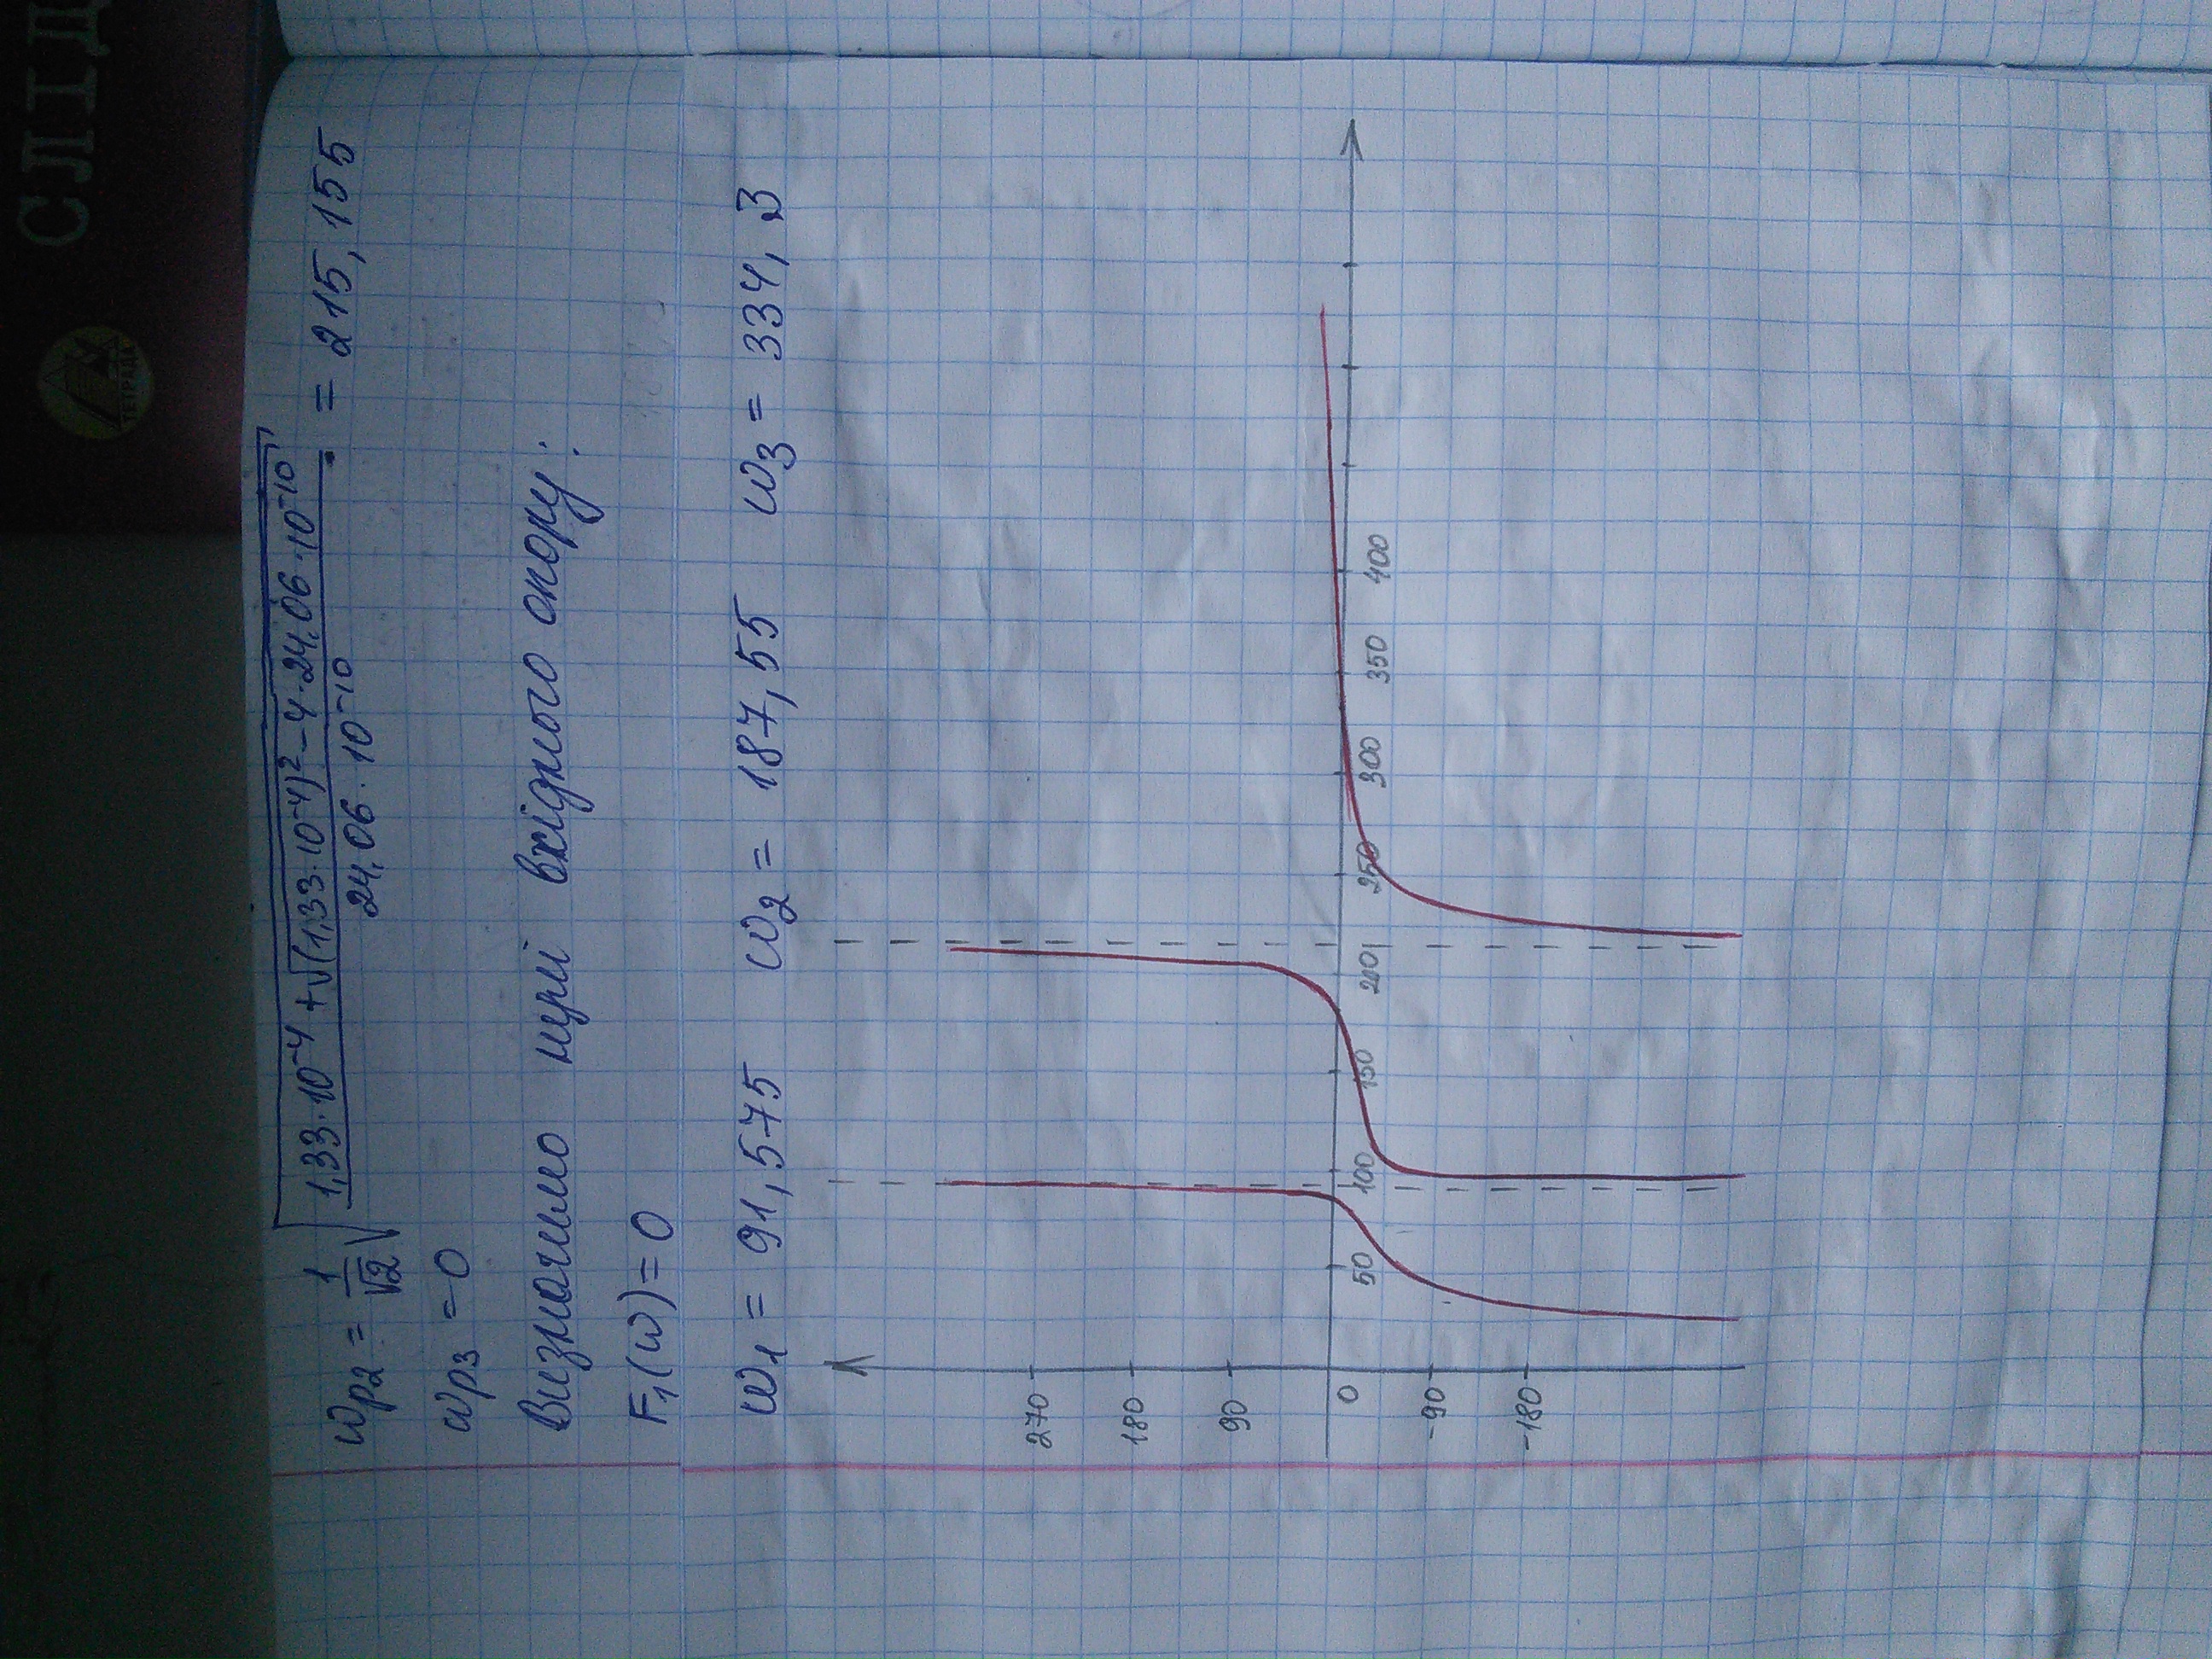 СЛІД
ТЕТРАДА
ωр2 = 1/√2 √((1,33·10⁻⁴ + √((1,33·10⁻⁴)² − 4·24,06·10⁻¹⁰))/(24,06·10⁻¹⁰)) = 215,155
ωр3 = 0
Визначимо нулі вхідного опору:
F₁(ω) = 0
ω₁ = 91,575 ω₂ = 187,55 ω₃ = 334,3
270
180
90
0
-90
-180
50 100 150 200 250 300 350 400